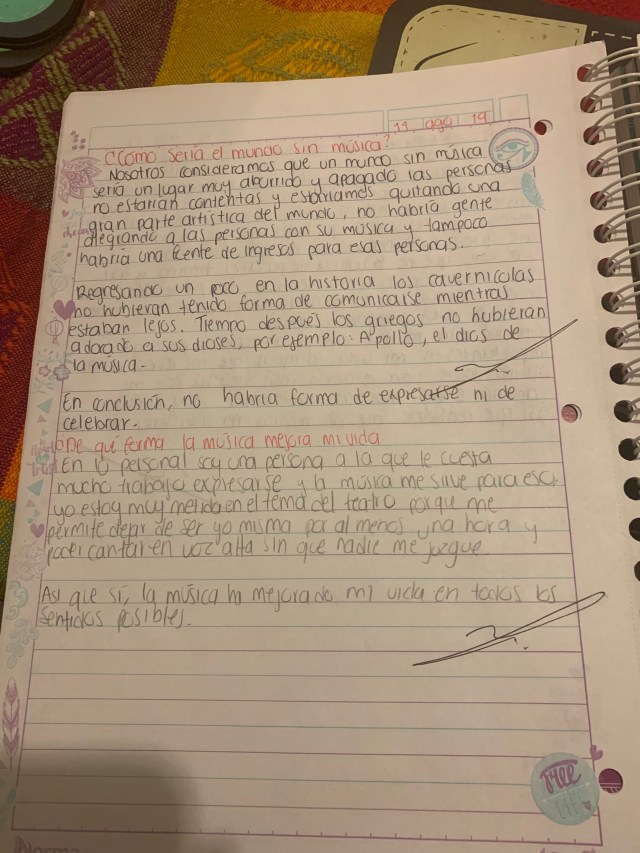 11 ago 19
¿Cómo sería el mundo sin música?
Nosotros consideramos que un mundo sin música
sería un lugar muy aburrido y apagado las personas
no estarían contentas y estaríamos quitando una
gran parte artística del mundo, no habría gente
alegrando a las personas con su música y tampoco
habría una fuente de ingresos para esas personas.
Regresando un poco en la historia los cavernícolas
no hubieran tenido forma de comunicarse mientras
estaban lejos. Tiempo después los griegos no hubieran
adorado a sus dioses, por ejemplo: Apollo, el dios de
la música.
En conclusión, no habría forma de expresarse ni de
celebrar.
¿De qué forma la música mejora mi vida
En lo personal soy una persona a la que le cuesta
mucho trabajo expresarse y la música me sirve para eso,
yo estoy muy metida en el tema del teatro porque me
permite dejar de ser yo misma por al menos una hora y
poder cantar en voz alta sin que nadie me juzgue
Así que sí, la música ha mejorado mi vida en todos los
sentidos posibles.
Free
Norma